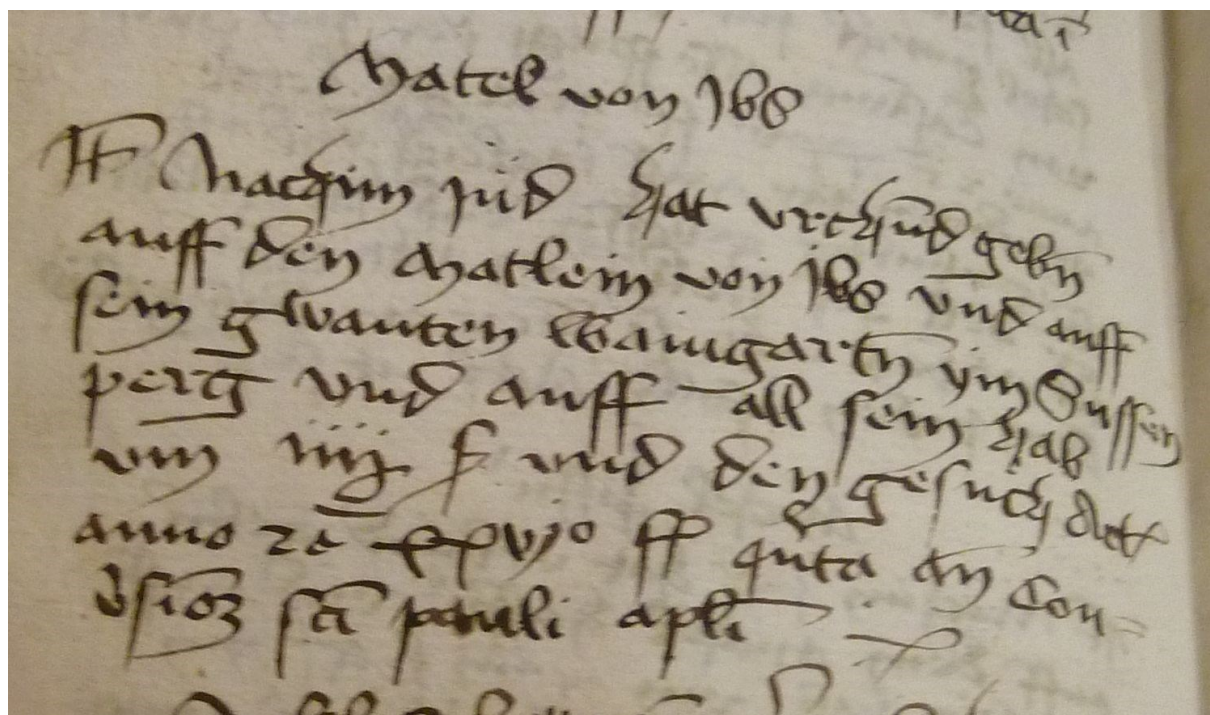 Matel von Ibs
It Nachim jud hat vrchund gebn
auff den Matlein von Ibs vnd auff
sein gwanten Waingartn ym Sussen
perg vnd auff all sein hab
vm iiij ß vnd den gesuch Act
anno 2c xxvjo ff quta an Con=
vsioz sci pauli apli